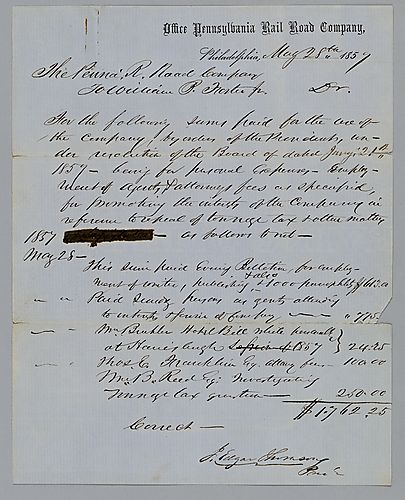 Office Pennsylvania Rail Road Company,
Philadelphia May 28th 1857
The Penna. R. Road Company
To William B Foster Jr. Dr.
For the following sums paid for the use of
the Company, by order of the President, un-
der resolution of the Board of dated Jany 21st
1857 — being for personal Expenses — Employ-
ment of agents & attorneys fees as specified,
for promoting the interests of the Company in
reference to repeal of tonnage tax & other matters
1857 — as follows to wit —
May 28 —
This sum paid Evening Bulletin, for employ-
ment of writer, publishing & also 1000 pamphlets
" — Paid Sundry persons as agents attending
to interests
" — Mr Hotel Bill while
at Harrisburgh 1857 24.25
" — Thos. E. Franklin Esq. attorney fee — 100.00
Wm. B. Reed Esq. Investigating
Tonnage tax question — 250.00
$1,762.25
Correct —
J. Edgar Thomson
Prest